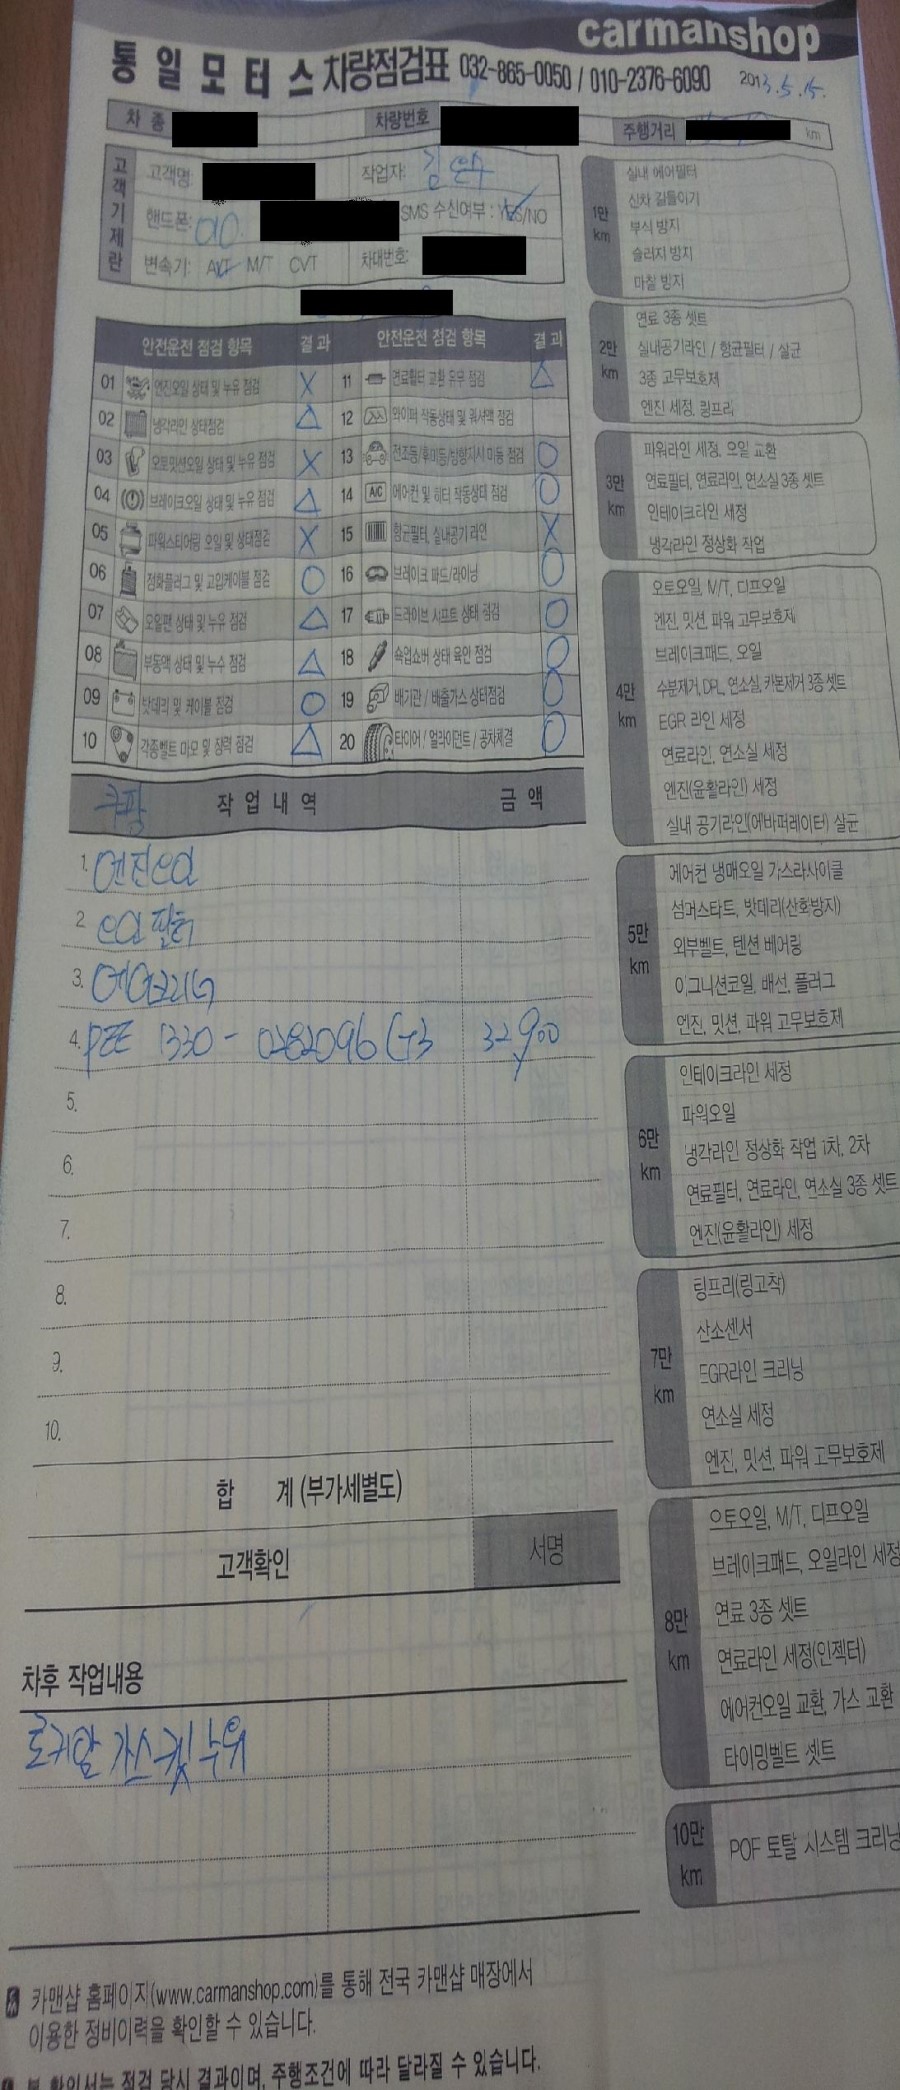 carmanshop
통일모터스 차량점검표 032-865-0050 / 010-2376-6090 2013.5.15.
차 종 차량번호 주행거리 km
고객기제란
고객명 작업자:
핸드폰: 010. SMS 수신여부 : YES/NO
변속기: A/T M/T CVT 차대번호:
안전운전 점검 항목 결 과 안전운전 점검 항목 결 과
01 엔진오일 상태 및 누유 점검 X 11 연료휠터 교환 유무 점검 △
02 냉각라인 상태점검 △ 12 와이퍼 작동상태 및 워샤액 점검
03 오토밋션오일 상태 및 누유 점검 X 13 전조등/후미등/방향지시 미등 점검 ○
04 브레이크오일 상태 및 누유 점검 △ 14 A/C 에어컨 및 히터 작동상태 점검 ○
05 파워스티어링 오일 및 상태점검 X 15 항균필터, 실내공기 라인 X
06 점화플러그 및 고압케이블 점검 ○ 16 브레이크 패드/라이닝 ○
07 오일팬 상태 및 누유 점검 △ 17 드라이브 샤프트 상태 점검 ○
08 부동액 상태 및 누수 점검 △ 18 쇽업쇼버 상태 육안 점검 ○
09 밧데리 및 케이블 점검 ○ 19 배기관 / 배출가스 상태점검 ○
10 각종벨트 마모 및 장력 점검 △ 20 타이어 / 얼라이먼트 / 공차체결 ○
쿠팡 작 업 내 역 금 액
1. 엔진오일
2 오일 필터
3. 에어크리너
4. 1330 - 0282096 32,900
5.
6.
7.
8.
9.
10.
합 계 (부가세별도)
고객확인 서명
차후 작업내용
로커암 가스켓 누유
카맨샵 홈페이지(www.carmanshop.com)를 통해 전국 카맨샵 매장에서
이용한 정비이력을 확인할 수 있습니다.
본 확인서는 점검 당시 결과이며, 주행조건에 따라 달라질 수 있습니다.
1만 km
실내 에어필터
신차 길들이기
부식 방지
슬러지 방지
마찰 방지
2만 km
연료 3종 셋트
실내공기라인 / 항균필터 / 살균
3종 고무보호제
엔진 세정, 링프리
3만 km
파워라인 세정, 오일 교환
연료필터, 연료라인, 연소실 3종 셋트
인테이크라인 세정
냉각라인 정상화 작업
4만 km
오토오일, M/T, 디프오일
엔진, 밋션, 파워 고무보호제
브레이크패드, 오일
수분제거, DPL, 연소실, 카본제거 3종 셋트
EGR 라인 세정
연료라인, 연소실 세정
엔진(윤활라인) 세정
실내 공기라인(에바퍼레이터) 살균
5만 km
에어컨 냉매오일 가스라사이클
섬머스타트, 밧데리(산호방지)
외부벨트, 텐션 베어링
이그니션코일, 배선, 플러그
엔진, 밋션, 파워 고무보호제
6만 km
인테이크라인 세정
파워오일
냉각라인 정상화 작업 1차, 2차
연료필터, 연료라인, 연소실 3종 셋트
엔진(윤활라인) 세정
7만 km
링프리(링고착)
산소센서
EGR라인 크리닝
연소실 세정
엔진, 밋션, 파워 고무보호제
8만 km
으토오일, M/T, 디프오일
브레이크패드, 오일라인 세정
연료 3종 셋트
연료라인 세정(인젝터)
에어컨오일 교환, 가스 교환
타이밍벨트 셋트
10만 km
POF 토탈 시스템 크리닝